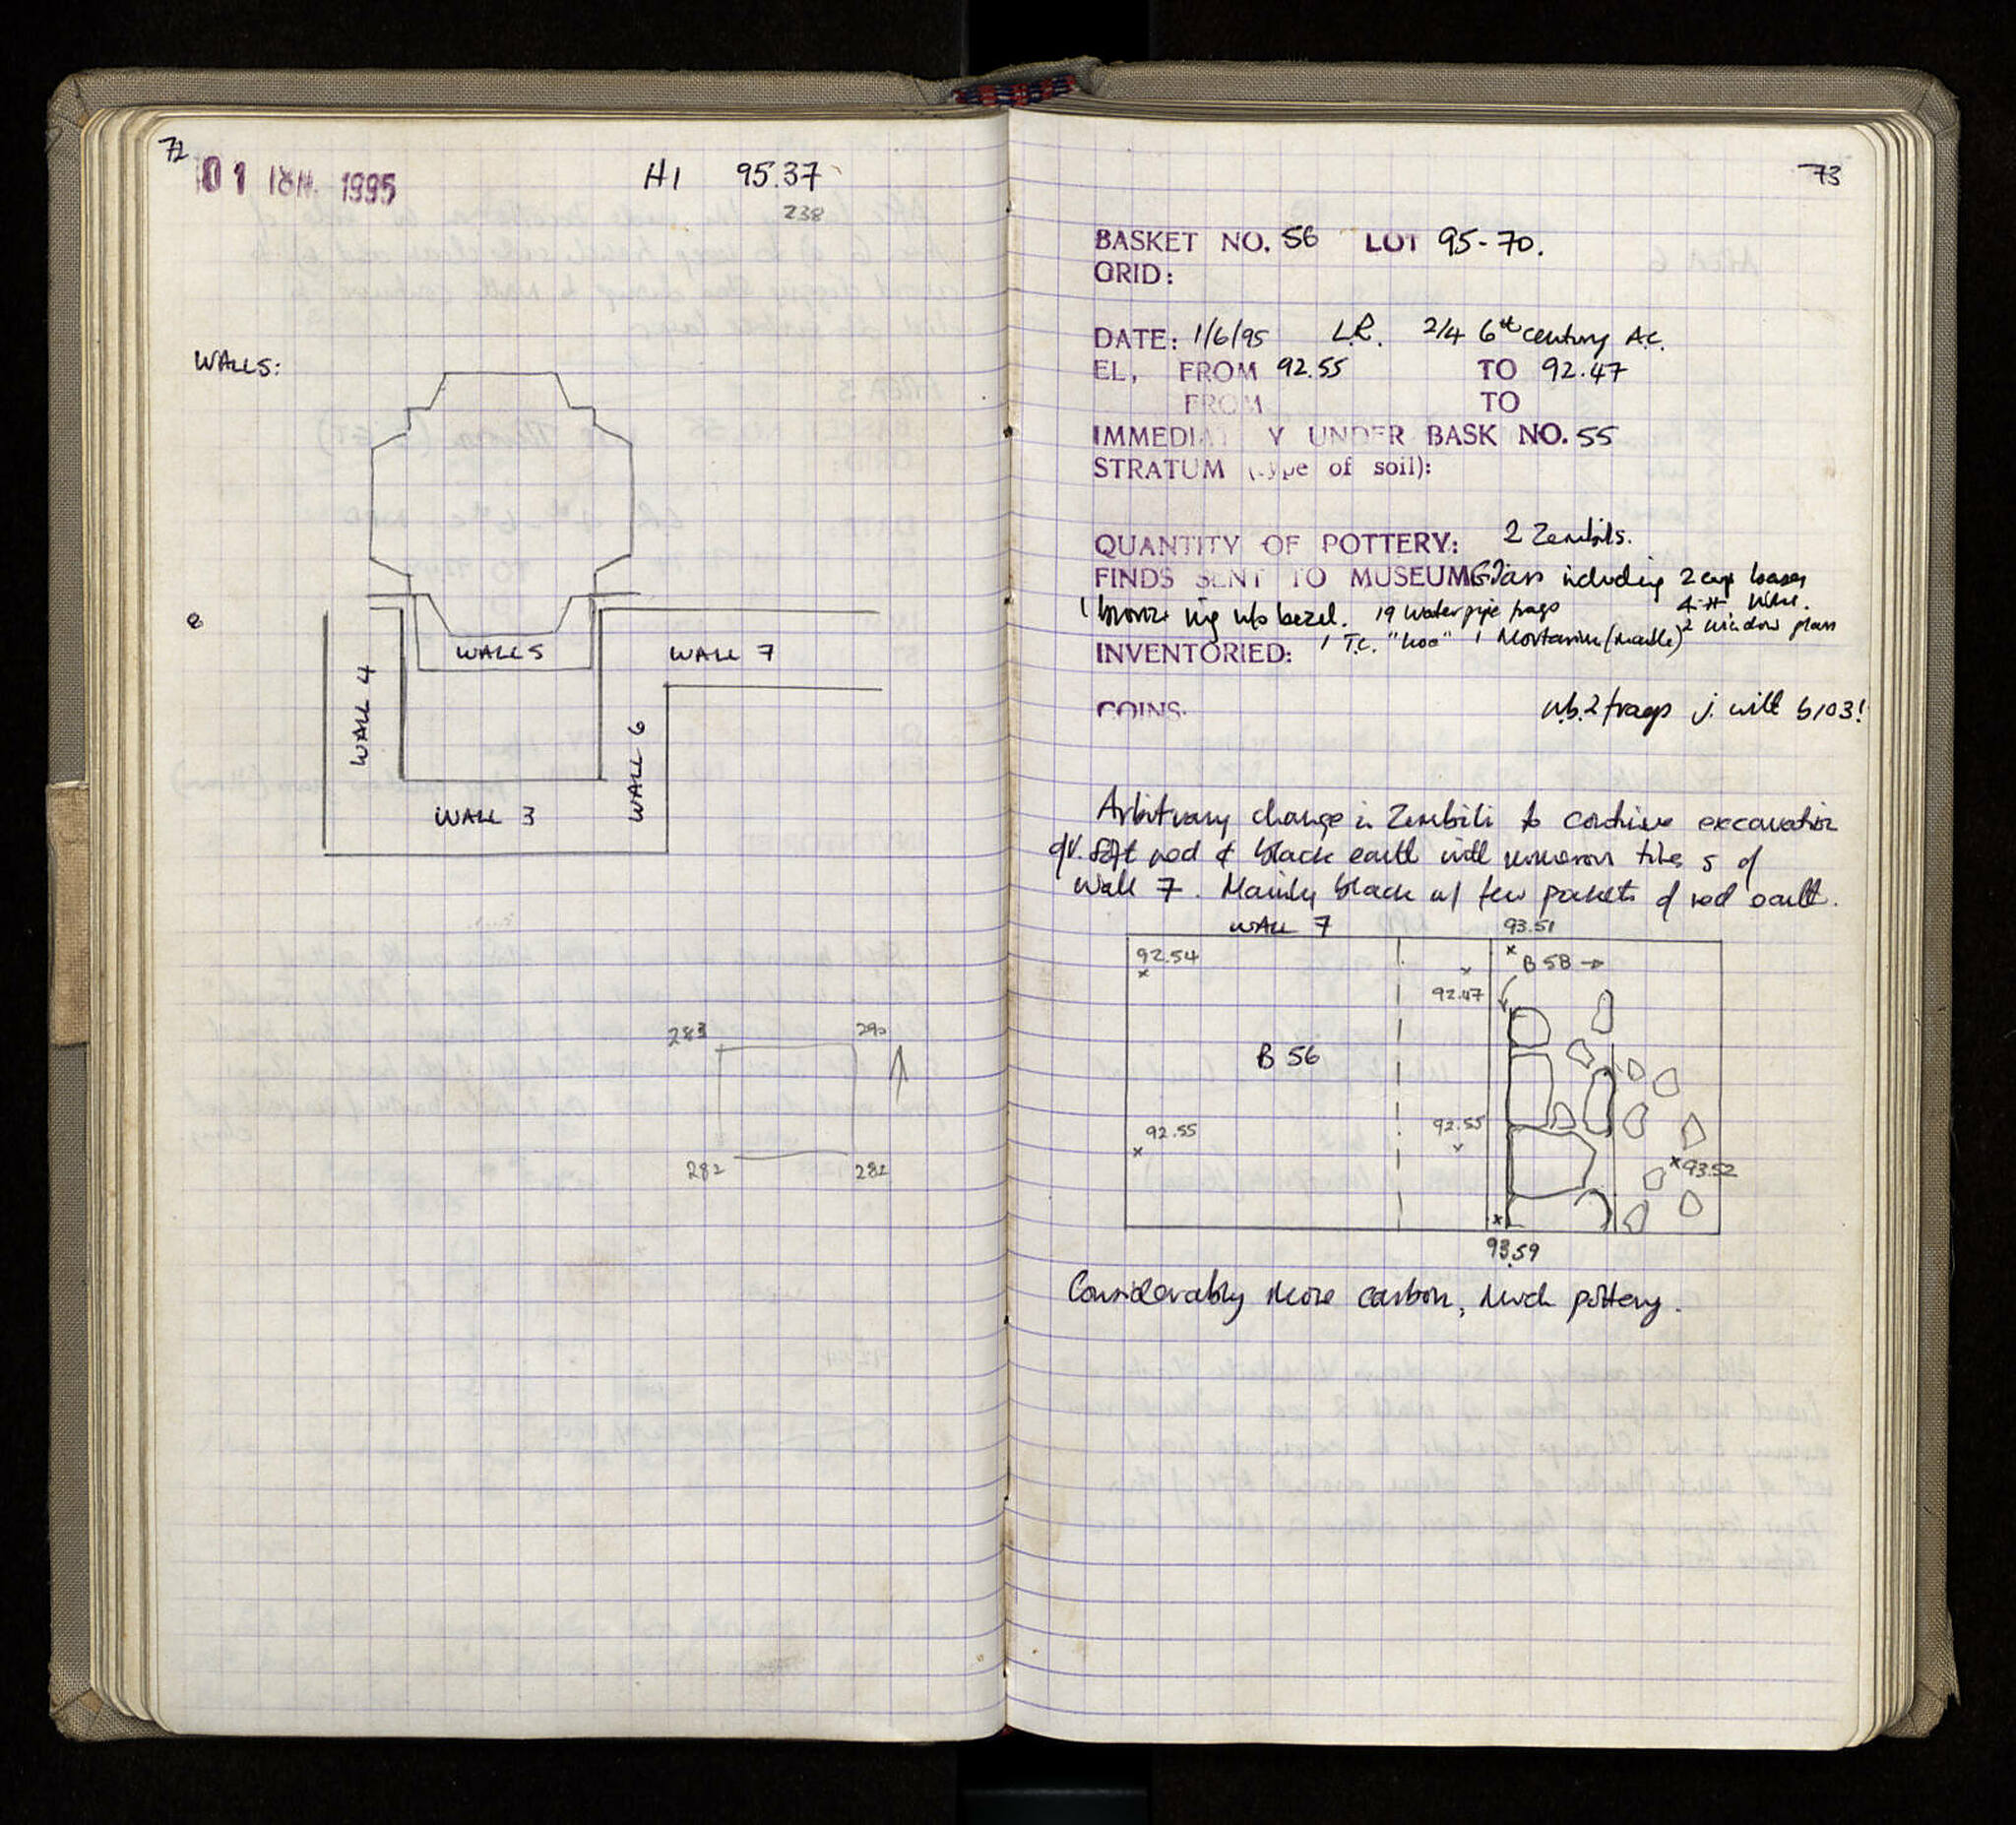 72
01 ΙΟΥΝ. 1995
H1 95.37
238
WALLS:
WALL 5
WALL 7
WALL 4
WALL 6
WALL 3
283 290
282 281
73
BASKET NO. 56 LOT 95-70.
GRID:
DATE: 1/6/95 L.R. 2/4 6th century A.C.
EL, FROM 92.55 TO 92.47
FROM TO
IMMEDIATELY UNDER BASK NO. 55
STRATUM (type of soil):
QUANTITY OF POTTERY: 2 Zembils.
FINDS SENT TO MUSEUM: Glass including 2 cup bases
1 bronze ring w/o bezel. 19 water pipe frags
2 window glass
INVENTORIED: 1 T.C. 1 Mortarium (marble)
COINS:
n.b. 2 frags j. with b103!
Arbitrary change in Zembili to continue excavation
of v. soft red & black earth with numerous tiles s of
Wall 7. Mainly black w/ few pockets of red earth.
WALL 7 93.51
92.54
B 58 →
92.47
B 56
92.55
92.55
93.52
93.59
Considerably more carbon, much pottery.